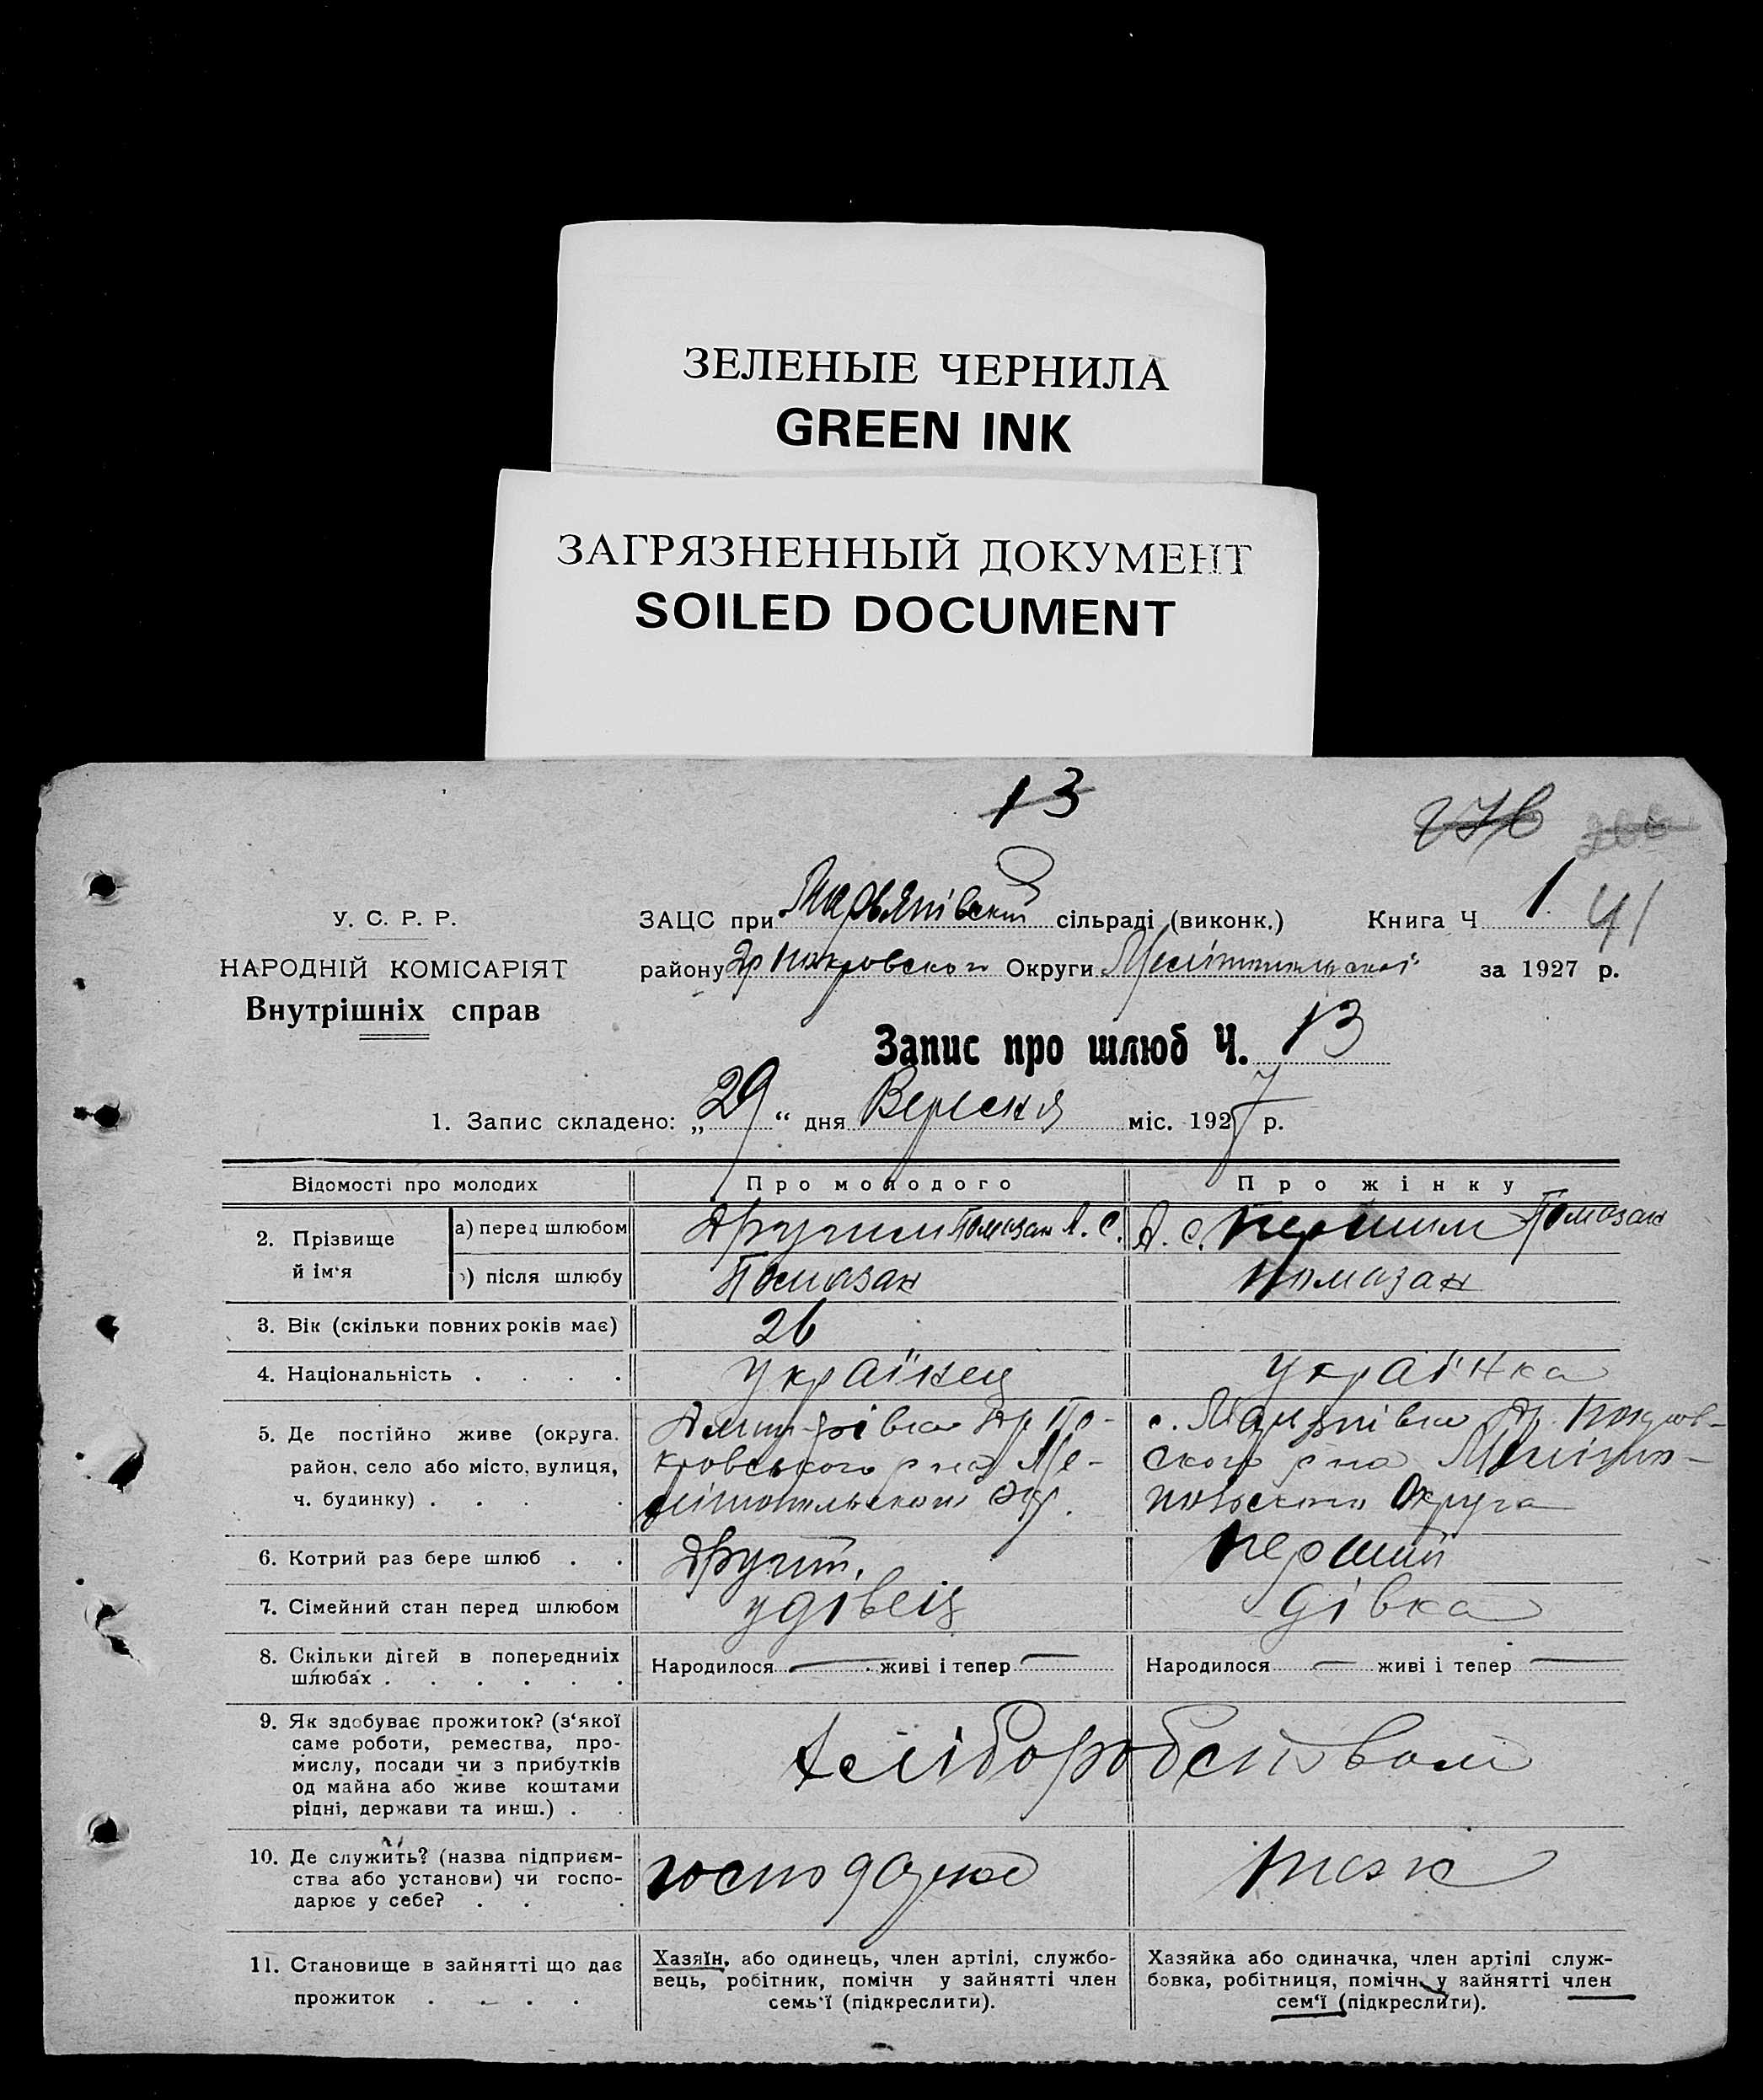 ЗЕЛЕНЫЕ ЧЕРНИЛА
GREEN INK
ЗАГРЯЗНЕННЫЙ ДОКУМЕНТ
SOILED DOCUMENT
13
276
У. С. Р. Р.
НАРОДНІЙ КОМІСАРІЯТ
Внутрішніх справ
ЗАЦС при Мар'янівскій сільраді (виконк.) Книга Ч 1 41
району Покровского Округи Мелітопольської за 1927 р.
Запис про шлюб Ч. 13
1. Запис складено: „29“ дня Вересня міс. 1927 р.
Відомості про молодих Про молодого Про жінку
2. Прізвище й ім'я
а) перед шлюбом Помазан А. С. А. С. Помазан
б) після шлюбу Помазан Помазан
3. Вік (скільки повних років має) 26
4. Національність . . . . Українец Українка
5. Де постійно живе (округа, район, село або місто, вулиця, ч. будинку) . . .
По-
кровського р на Ме-
літопольскои Окр.
с. Покров-
ского р на Меліто-
польского Округа
6. Котрий раз бере шлюб . . Другий. перший
7. Сімейний стан перед шлюбом удівець дівка
8. Скільки дітей в попередниіх шлюбах . . . . . .
Народилося — живі і тепер —
Народилося — живі і тепер —
9. Як здобуває прожиток? (з'якої
саме роботи, ремества, про-
мислу, посади чи з прибутків
од майна або живе коштами
рідні, держави та инш.) . .
хліборобством
10. Де служить? (назва підприєм-
ства або установи) чи госпо-
дарює у себе? . . .
господарює
теж
11. Становище в зайнятті що дає
прожиток . . . .
Хазяїн, або одинець, член артілі, службо-
вець, робітник, помічн у зайнятті член
семь'ї (підкреслити).
Хазяйка або одиначка, член артілі служ-
бовка, робітниця, помічн. у зайнятті член
сем'ї (підкреслити).